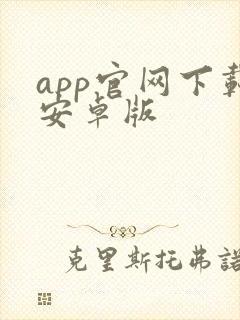 app官网下载
安卓版
克里斯托弗諾